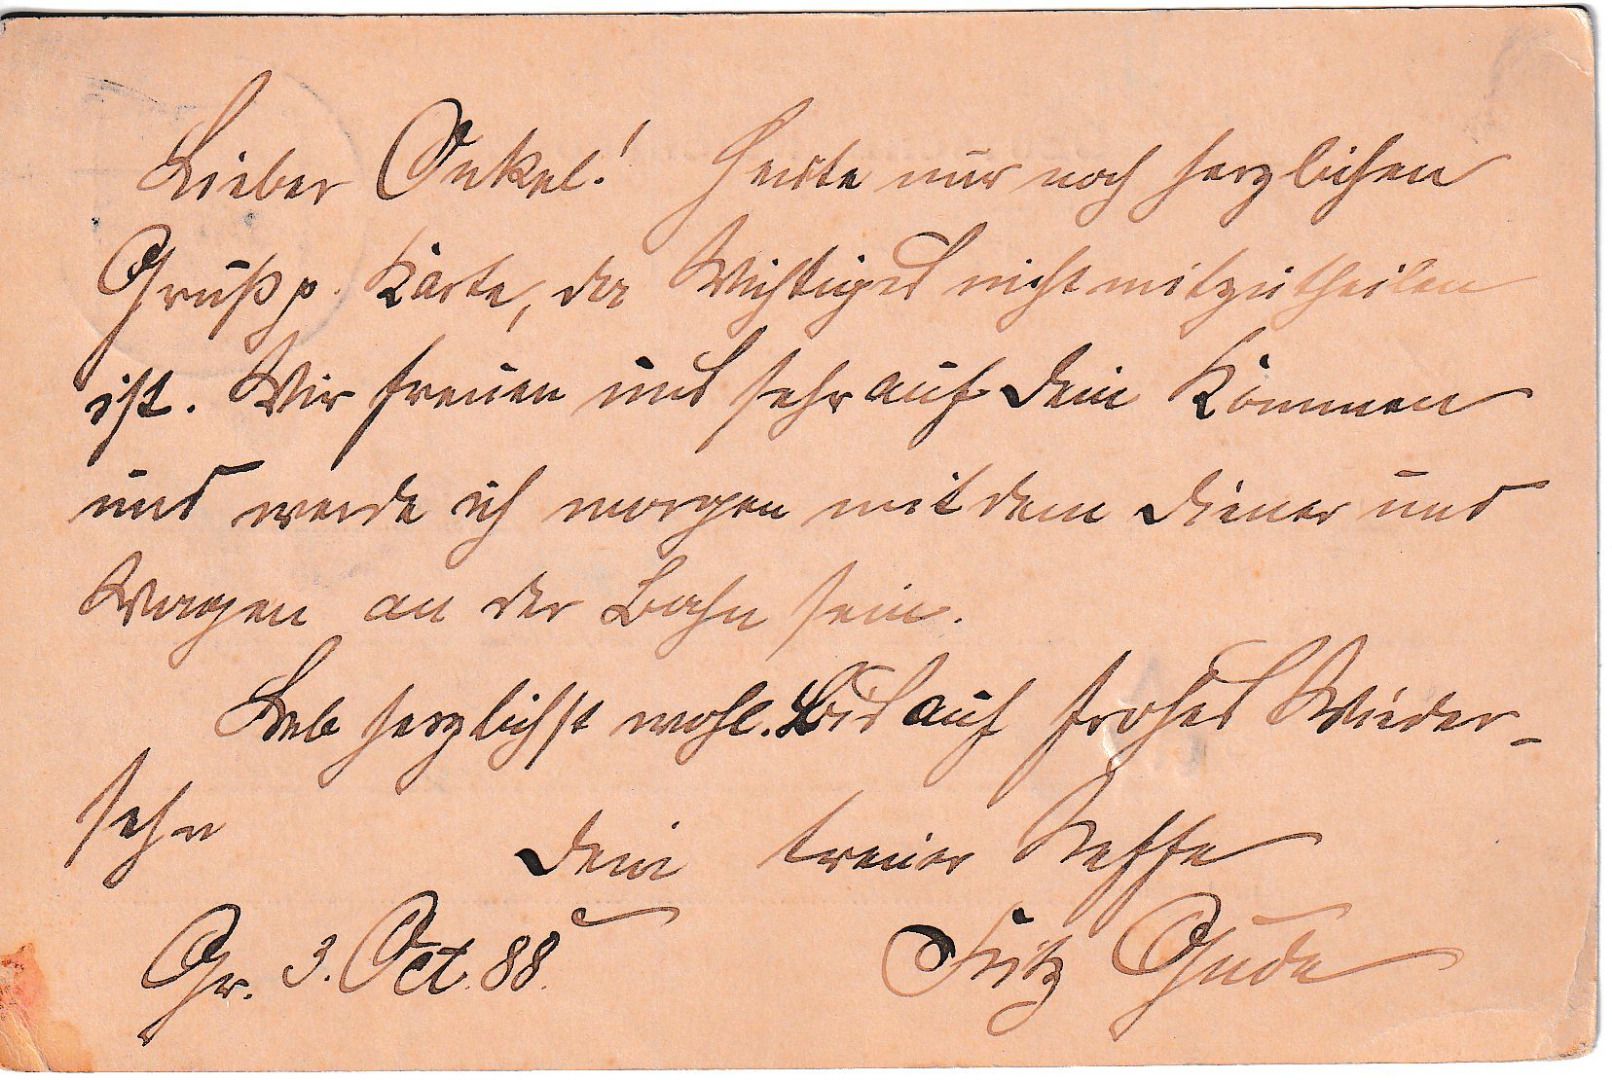 Lieber Onkel! Heute nur noch herzlichen
Gruß p. Karte, da Wichtiges nicht mitzutheilen
ist. Wir freuen uns sehr auf Dein Kommen
und werde ich morgen mit dem Diener und
Wagen an der Bahn sein.
Leb herzlichst wohl. Bis auf frohes Wieder-
sehn
Dein treuer Neffe
Gr. 3. Oct. 88. Fritz Gude